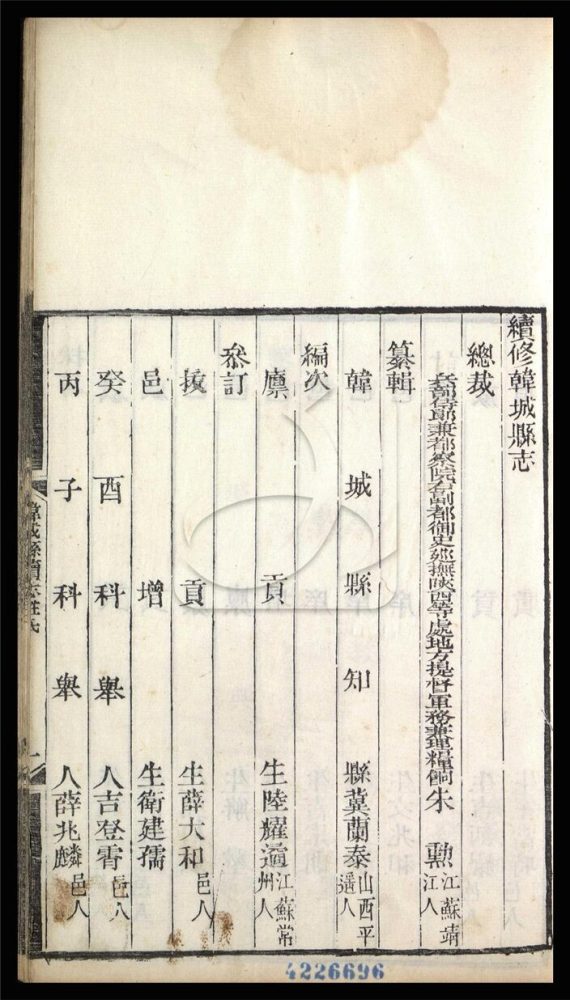 續修韓城縣志
總裁
兵部侍郎兼都察院右副都御史巡撫陝西等處地方提督軍務兼理糧餉朱 勳江蘇靖江人
纂輯
韓城縣知縣冀蘭泰山西平遙人
編次
廩貢生陸耀遹江蘇常州人
參訂
拔貢生薛大和邑人
邑增生衛建孺
癸酉科舉人吉登霄邑人
丙子科舉人薛兆麟邑人
韓城縣續志姓氏
一
4226696